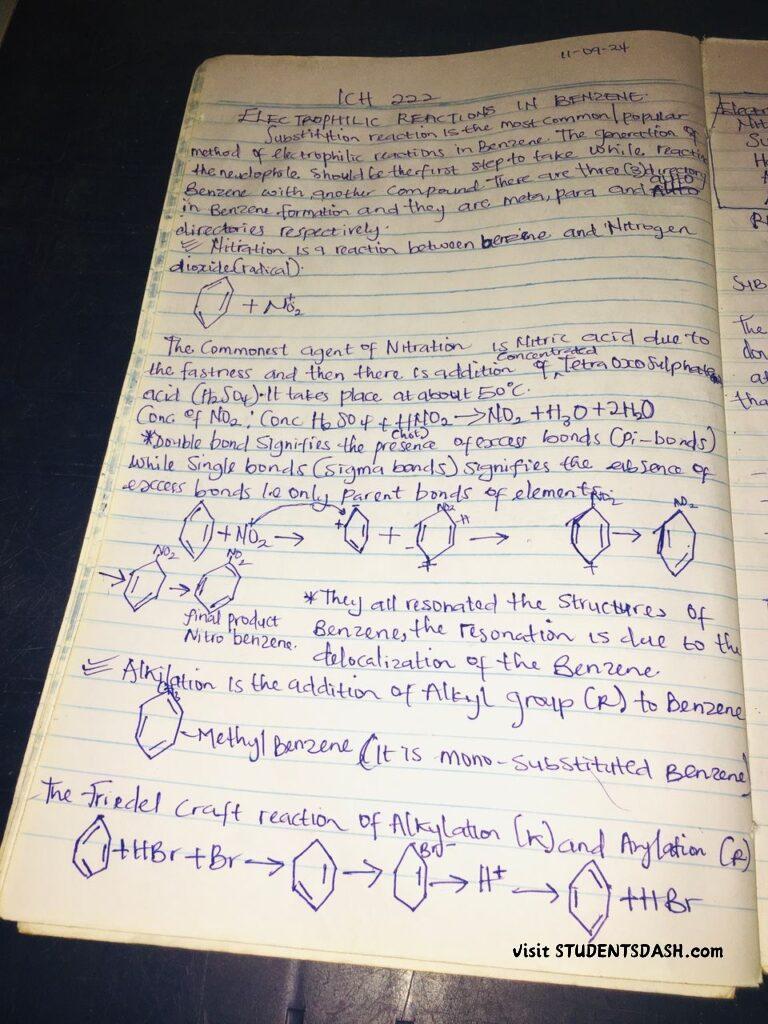 11-09-24
ICH 222
ELECTROPHILIC REACTIONS IN BENZENE.
Substitution reaction is the most common/popular
method of electrophilic reactions in Benzene. The generation of
the neuclophile should be the first step to take while reacting
Benzene with another compound. There are three (3) directory
in Benzene formation and they are meta, para and auto
directories respectively.
Nitration is a reaction between benzene and Nitrogen
dioxide (radical).
+ NO₂⁺
The Commonest agent of Nitration is Nitric acid due to
the fastness and then there is addition of Concentrated Tetraoxosulphate
acid (H₂SO₄). It takes place at about 50°C.
Conc of NO₂: Conc H₂SO₄ + HNO₂ → NO₂ + H₃O + 2H₂O
(hot)
*Double bond signifies the presence of excess bonds (pi-bonds)
while single bonds (sigma bonds) signifies the absence of
excess bonds i.e only parent bonds of elements.
+ NO₂ → + + NO₂ H - + → NO₂ + → NO₂
→ NO₂ → NO₂
final product
Nitro benzene.
*They all resonated the structures of
Benzene, the resonation is due to the
delocalization of the Benzene
Alkilation is the addition of Alkyl group (R) to Benzene
CH₃
- Methyl Benzene (It is mono-substituted Benzene)
The Friedel Craft reaction of Alkylation (R) and Arylation (R)
+ HBr + Br → → Br⁻ → H⁺ → + HBr
Electro
Nit
Su
H
SUB
The
dou
at
tha
visit STUDENTSDASH.com